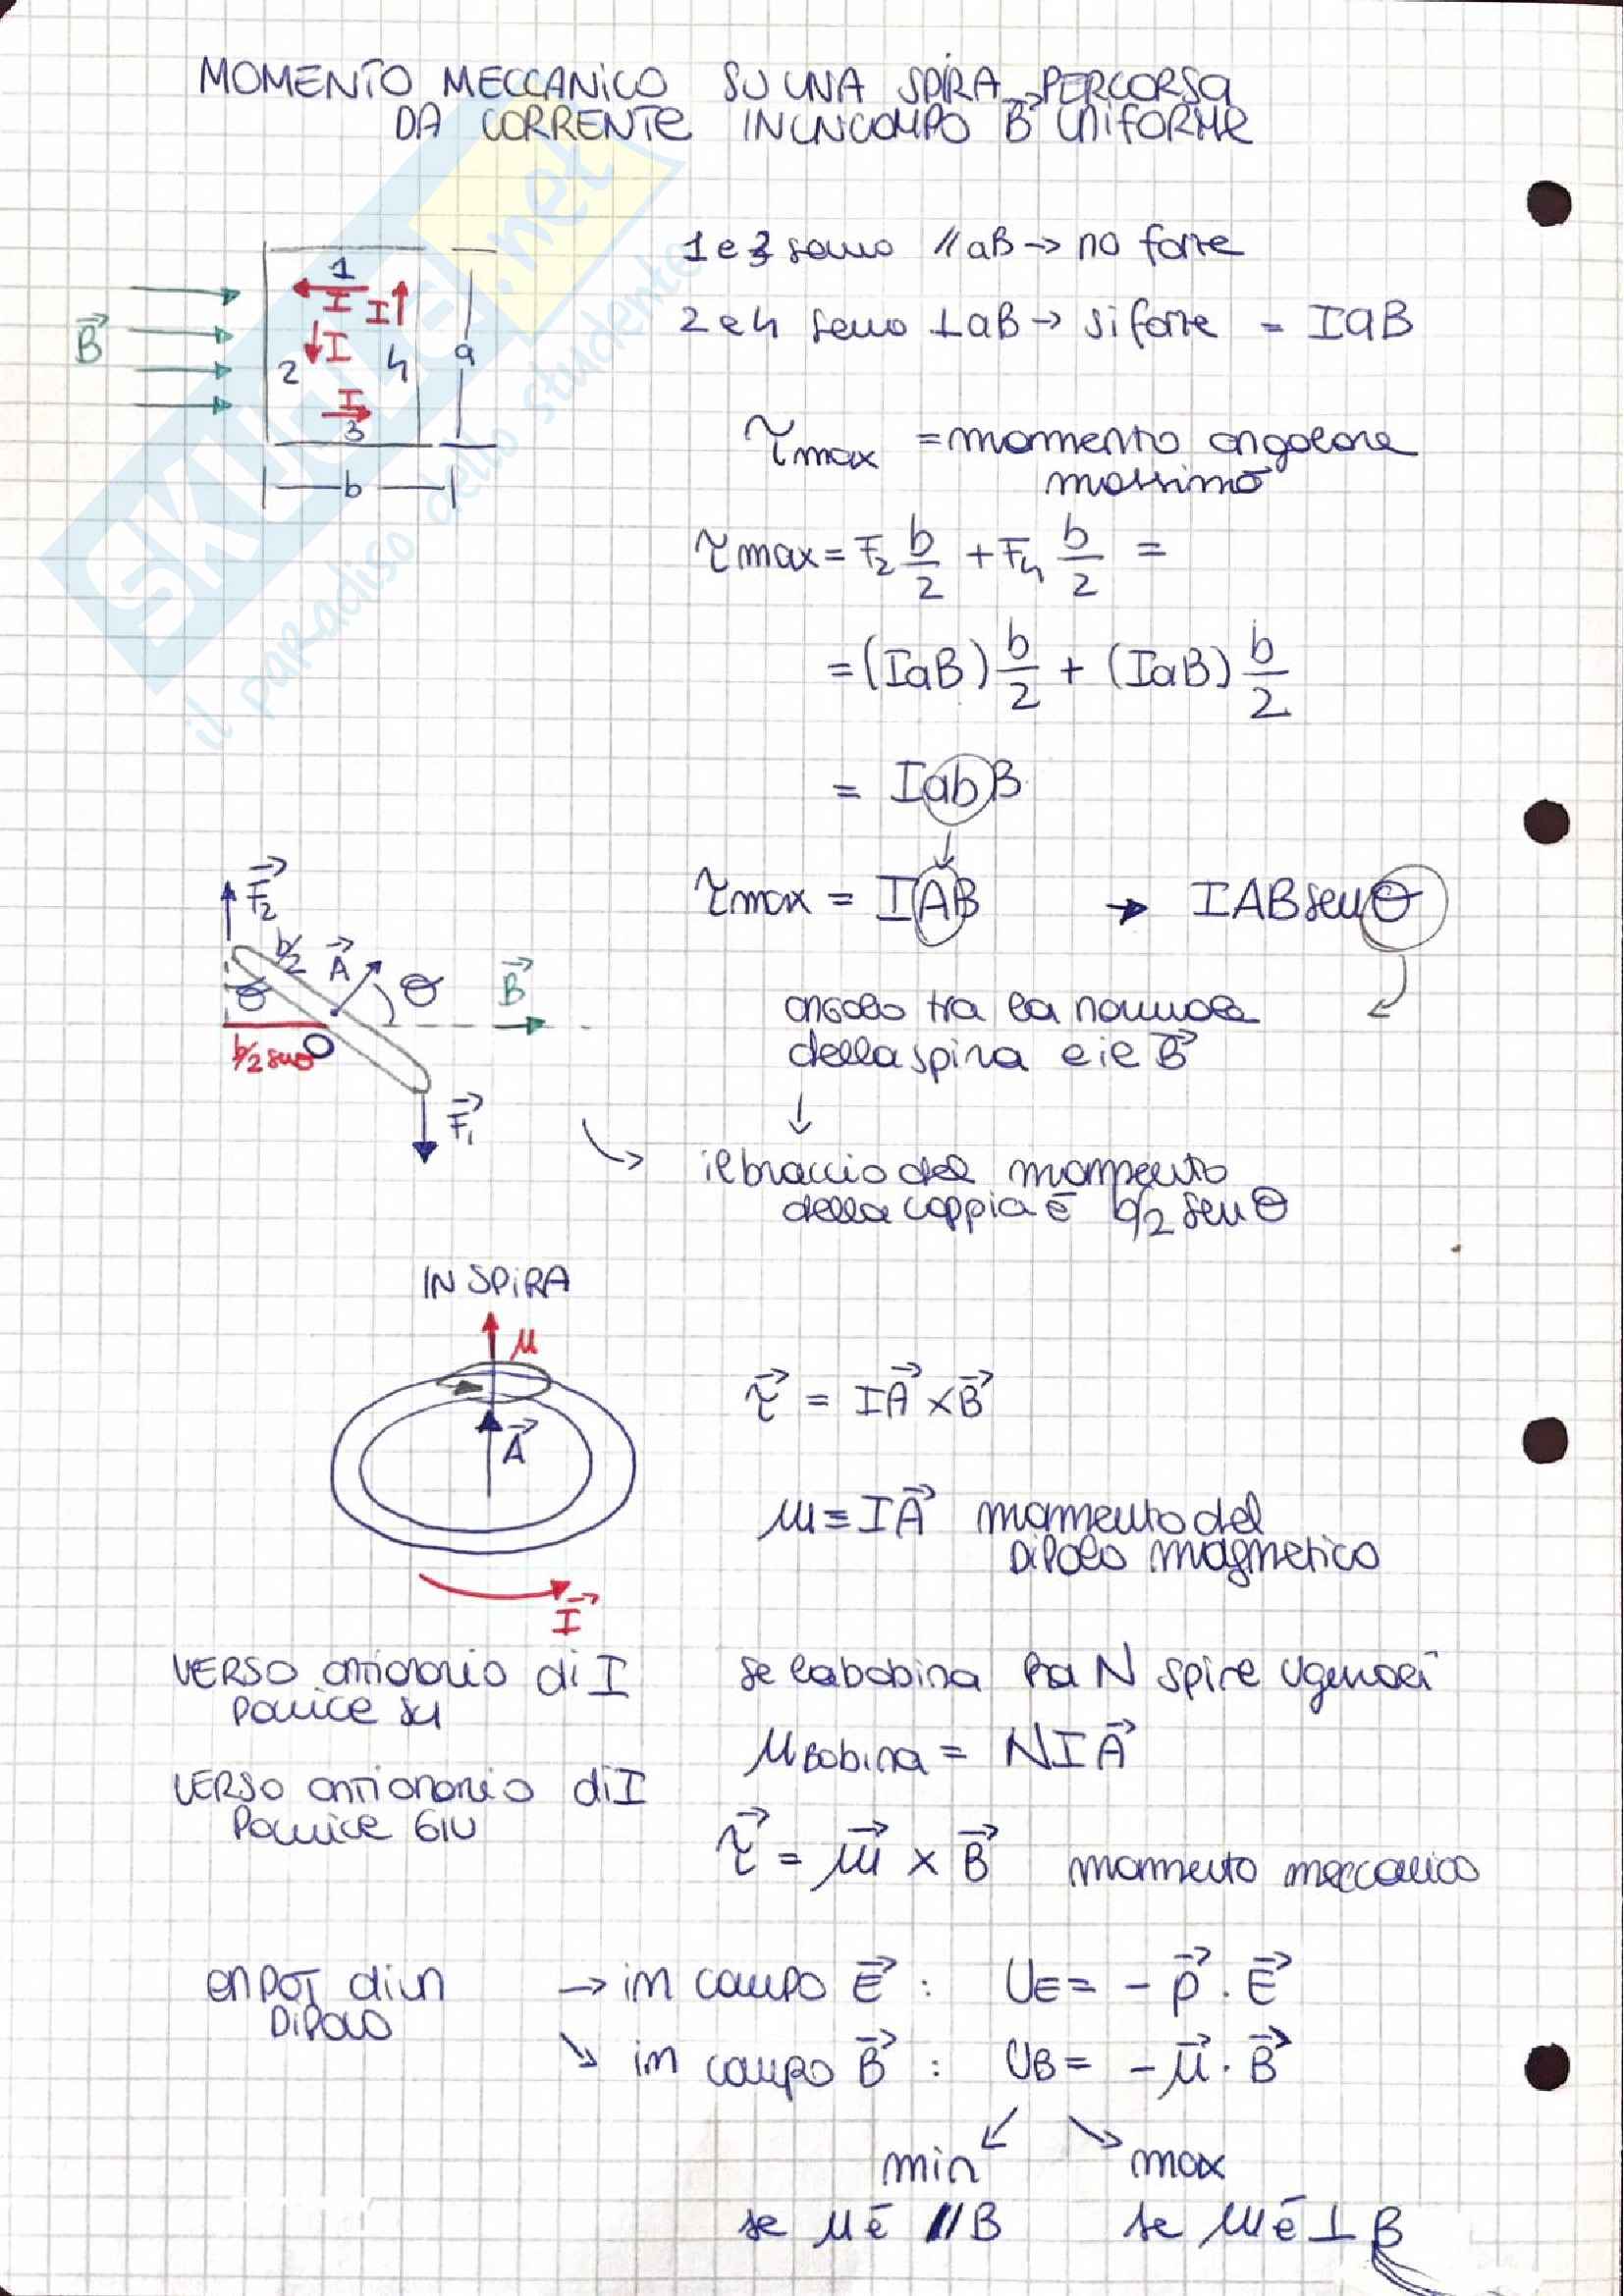 MOMENTO MECCANICO SU UNA SPIRA PERCORSA
DA CORRENTE IN UN CAMPO B⃗ UNIFORME
SKUOLA.net
il paradiso dello studente
1 e 3 sono // a B → no forze
2 e 4 sono ⊥ a B → si forze = IaB
B⃗
1
I
I
I
2
4
a
I
3
b
τmax = momento angolare
massimo
τmax = F₂ b/2 + F₄ b/2 =
= (IaB) b/2 + (IaB) b/2
= IabB
τmax = IAB → IAB senθ
F⃗₂
b/2
A⃗
θ
θ
B⃗
b/2 senθ
O
F⃗₁
angolo tra la normale
della spira e il B⃗
il braccio del momento
della coppia è b/2 senθ
IN SPIRA
μ
A⃗
I⃗
τ⃗ = IA⃗ × B⃗
μ = IA⃗ momento del
DIPOLO magnetico
VERSO antiorario di I
POLLICE SU
VERSO antiorario di I
POLLICE GIU
se la bobina ha N spire uguali
μBobina = NIA⃗
τ⃗ = μ⃗ × B⃗ momento meccanico
EN POT di un
DIPOLO
→ in campo E⃗ : UE = - p⃗ · E⃗
↘ in campo B⃗ : UB = - μ⃗ · B⃗
min
max
se μ è // B
se μ è ⊥ B